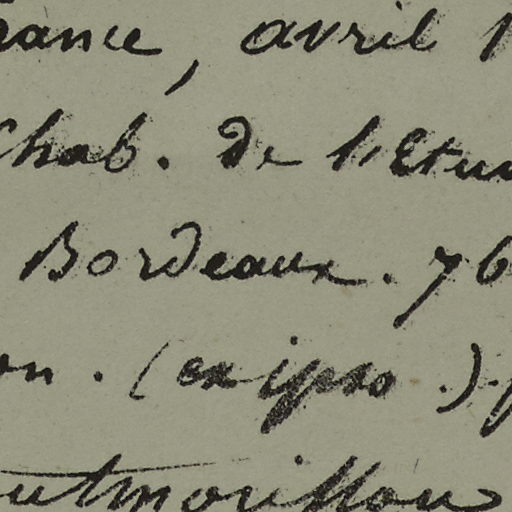 rance, avril 1
Chab. de l'Etun
Bordeaux. 76
on. (ex ipso.). f
utmorillon